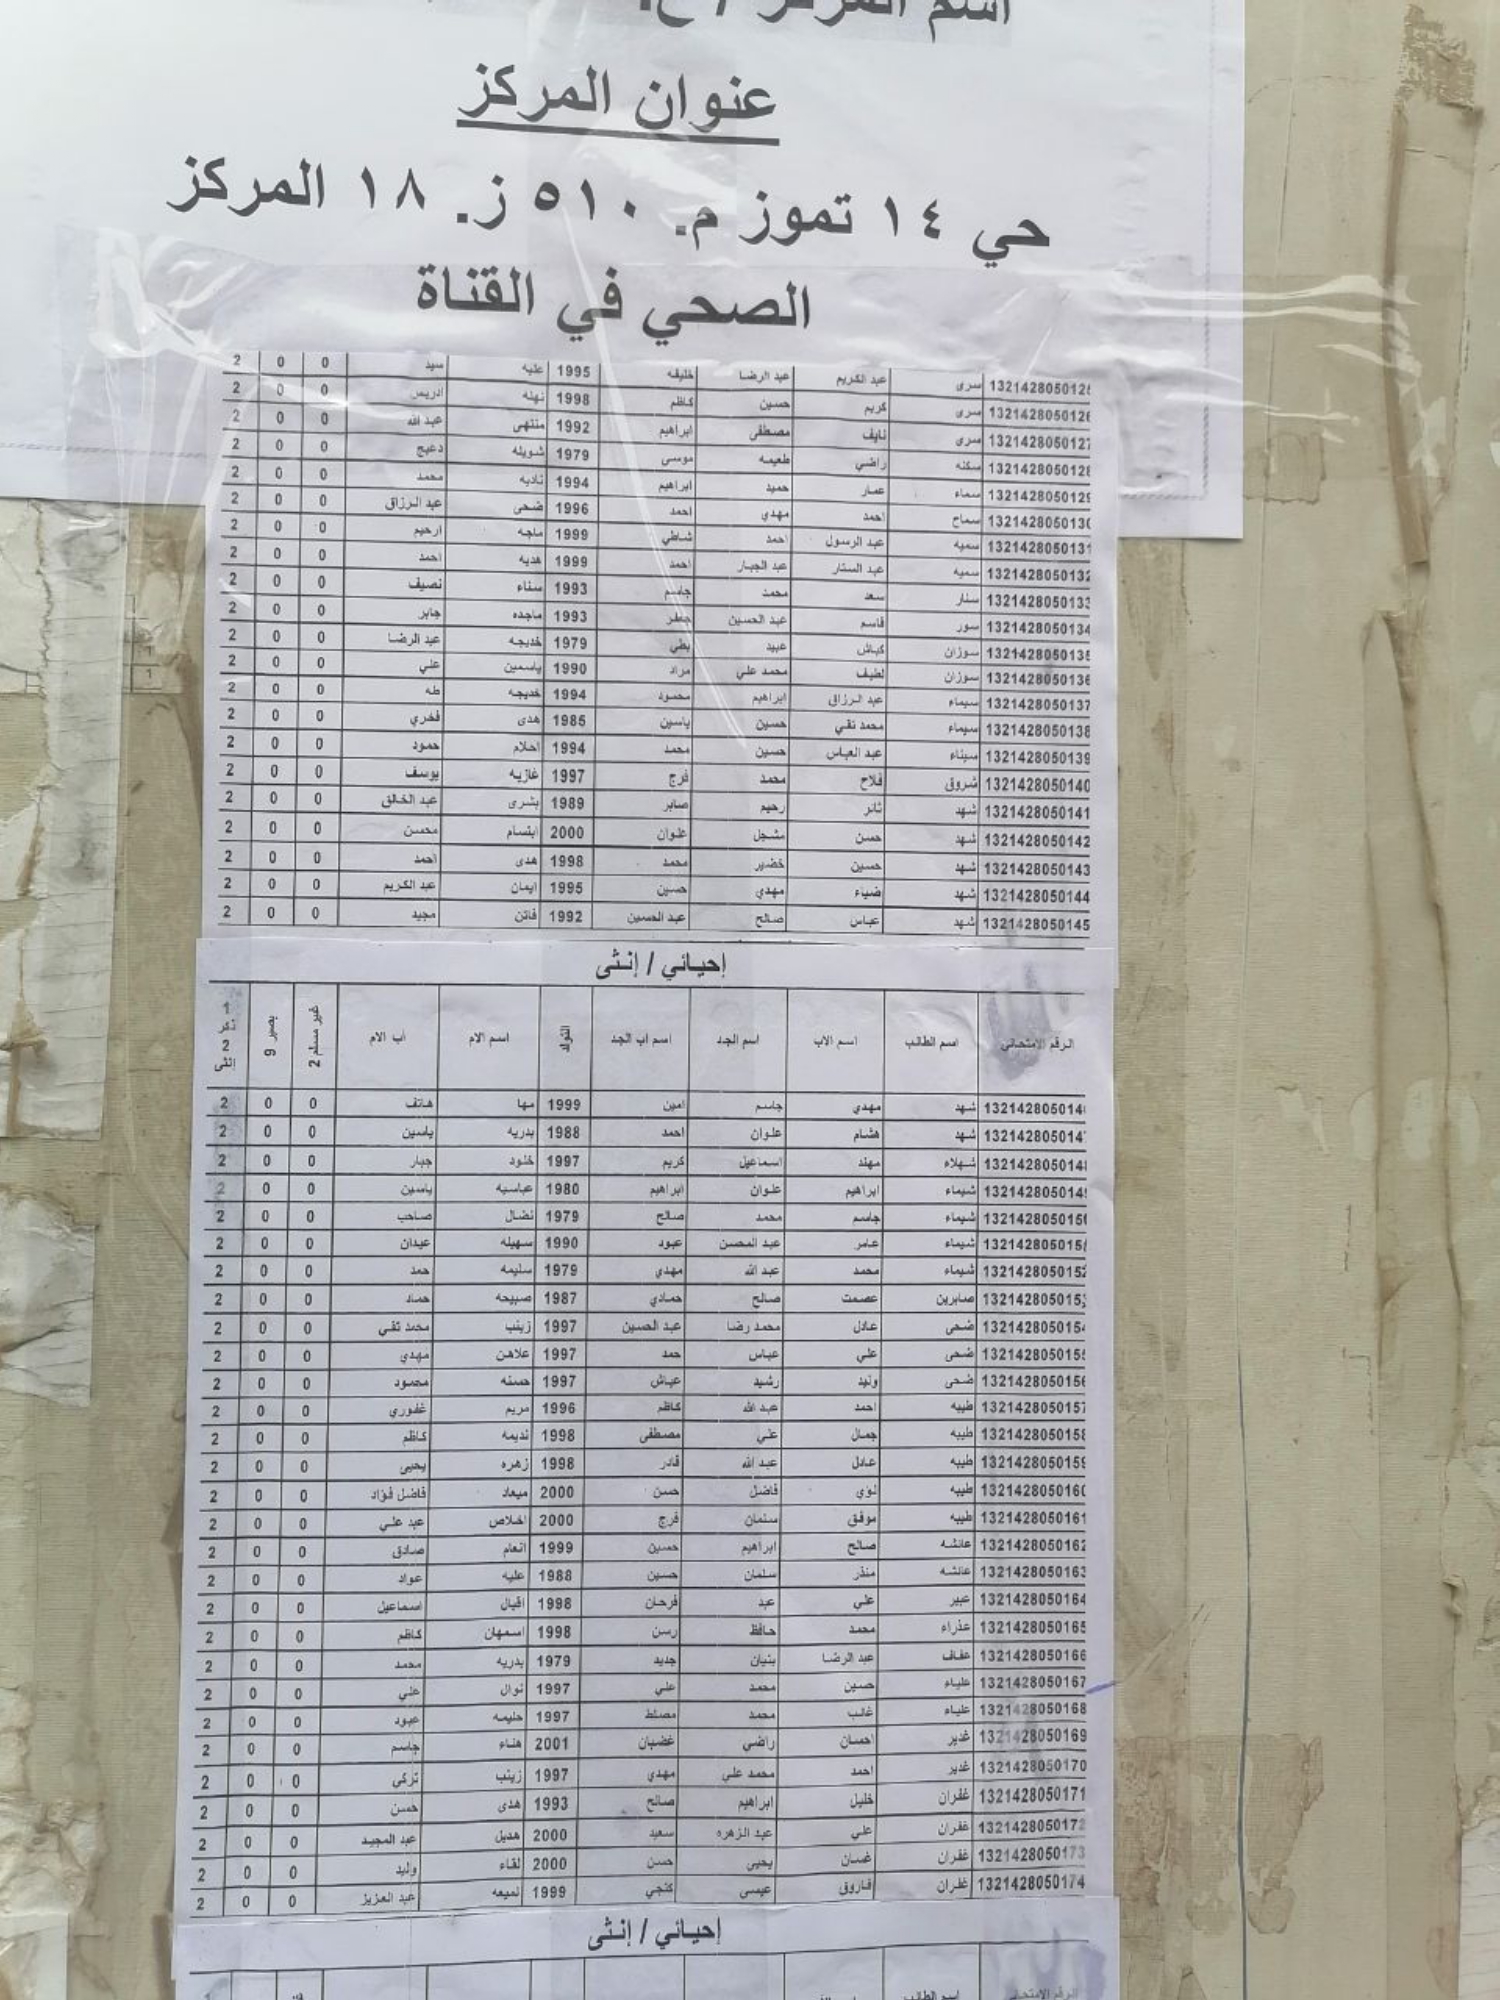 اسم المركز / ح.
عنوان المركز
حي ١٤ تموز م. ٥١٠ ز. ١٨ المركز
الصحي في القناة
132142805012 سرى عبد الكريم عبد الرضا خليفه 1995 عليه سيد 0 0 2
132142805012 سرى كريم حسين كاظم 1998 نهله ادريس 0 0 2
1321428050127 سرى نايف مصطفى ابراهيم 1992 منتهى عبد الله 0 0 2
132142805012 سكنه راضي طعيمه موسى 1979 شويله دعيج 0 0 2
1321428050129 سماء عمار حميد ابراهيم 1994 ناديه محمد 0 0 2
1321428050130 سماح احمد مهدي احمد 1996 ضحى عبد الرزاق 0 0 2
1321428050131 سميه عبد الرسول احمد شاطي 1999 ماجه ارحيم 0 0 2
1321428050132 سميه عبد الستار عبد الجبار احمد 1999 هديه احمد 0 0 2
1321428050133 سنار سعد محمد جاسم 1993 سناء نصيف 0 0 2
1321428050134 سور قاسم عبد الحسين جعفر 1993 ماجده جابر 0 0 2
1321428050135 سوزان كباش عبيد بطي 1979 خديجه عبد الرضا 0 0 2
1321428050136 سوزان لطيف محمد علي مراد 1990 ياسمين علي 0 0 2
1321428050137 سيماء عبد الرزاق ابراهيم محمود 1994 خديجه طه 0 0 2
1321428050138 سيماء محمد تقي حسين ياسين 1985 هدى فخري 0 0 2
1321428050139 سيناء عبد العباس حسين محمد 1994 احلام حمود 0 0 2
1321428050140 شروق فلاح محمد فرج 1997 غازيه يوسف 0 0 2
1321428050141 شهد ثائر رحيم صابر 1989 بشرى عبد الخالق 0 0 2
1321428050142 شهد حسن مشجل علوان 2000 ابتسام محسن 0 0 2
1321428050143 شهد حسين خضير محمد 1998 هدى احمد 0 0 2
1321428050144 شهد ضياء مهدي حسين 1995 ايمان عبد الكريم 0 0 2
1321428050145 شهد عباس صالح عبد الحسين 1992 فاتن مجيد 0 0 2
إحيائي / إنثى
الرقم الامتحاني اسم الطالب اسم الاب اسم الجد اسم اب الجد التولد اسم الام أب الام غير مسلم 2 بصير 9 1 ذكر 2 إنثى
132142805014 شهد مهدي جاسم امين 1999 مها هاتف 0 0 2
132142805014 شهد هشام علوان احمد 1988 بدريه ياسين 0 0 2
132142805014 شهلاء مهند اسماعيل كريم 1997 خلود جبار 0 0 2
132142805014 شيماء ابراهيم علوان ابراهيم 1980 عباسيه ياسين 0 0 2
132142805015 شيماء جاسم محمد صالح 1979 نضال صاحب 0 0 2
132142805015 شيماء عامر عبد المحسن عبود 1990 سهيله عبدان 0 0 2
1321428050152 شيماء محمد عبد الله مهدي 1979 سليمه حمد 0 0 2
1321428050153 صابرين عصمت صالح حمادي 1987 صبيحه حماد 0 0 2
1321428050154 ضحى عادل محمد رضا عبد الحسين 1997 زينب محمد تقي 0 0 2
1321428050155 ضحى علي عباس حمد 1997 علاهن مهدي 0 0 2
1321428050156 ضحى وليد رشيد عياش 1997 حسنه محمود 0 0 2
1321428050157 طيبه احمد عبد الله كاظم 1996 مريم غفوري 0 0 2
1321428050158 طيبه جمال علي مصطفى 1998 نديمه كاظم 0 0 2
1321428050159 طيبه عادل عبد الله قادر 1998 زهره يحيى 0 0 2
1321428050160 طيبه لؤي فاضل حسن 2000 ميعاد فاضل فؤاد 0 0 2
1321428050161 طيبه موفق سلمان فرج 2000 اخلاص عبد علي 0 0 2
1321428050162 عائشه صالح ابراهيم حسين 1999 انعام صادق 0 0 2
1321428050163 عائشه منذر سلمان حسين 1988 عليه عواد 0 0 2
1321428050164 عبير علي عبد فرحان 1998 اقبال اسماعيل 0 0 2
1321428050165 عذراء محمد حافظ رسن 1998 اسمهان كاظم 0 0 2
1321428050166 عفاف عبد الرضا بنيان جديد 1979 بدريه محمد 0 0 2
1321428050167 علياء حسين محمد علي 1997 نوال علي 0 0 2
1321428050168 علياء غالب محمد مصلط 1997 حليمه عبود 0 0 2
1321428050169 غدير احسان راضي غضبان 2001 هناء جاسم 0 0 2
1321428050170 غدير احمد محمد علي مهدي 1997 زينب تركي 0 0 2
1321428050171 غفران خليل ابراهيم صالح 1993 هدى حسن 0 0 2
1321428050172 غفران علي عبد الزهره سعيد 2000 هديل عبد المجيد 0 0 2
1321428050173 غفران غسان يحيى حسن 2000 لقاء وليد 0 0 2
1321428050174 غفران فاروق عيسى كنجي 1999 نميعه عبد العزيز 0 0 2
إحيائي / إنثى
الرقم الامتحاني اسم الطالب